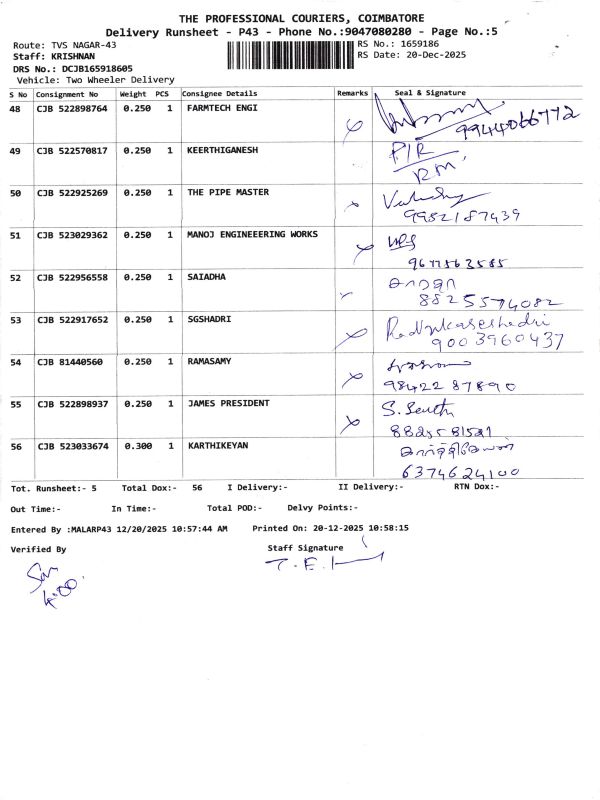 THE PROFESSIONAL COURIERS, COIMBATORE
Delivery Runsheet - P43 - Phone No.:9047080280 - Page No.:5
Route: TVS NAGAR-43
RS No.: 1659186
Staff: KRISHNAN
RS Date: 20-Dec-2025
DRS No.: DCJB165918605
Vehicle: Two Wheeler Delivery
S No Consignment No Weight PCS Consignee Details Remarks Seal & Signature
48 CJB 522898764 0.250 1 FARMTECH ENGI
9944066772
49 CJB 522570817 0.250 1 KEERTHIGANESH P/R
RM
50 CJB 522925269 0.250 1 THE PIPE MASTER
9982187439
51 CJB 523029362 0.250 1 MANOJ ENGINEEERING WORKS
9677563585
52 CJB 522956558 0.250 1 SAIADHA
8825574082
53 CJB 522917652 0.250 1 SGSHADRI
9003960437
54 CJB 81440560 0.250 1 RAMASAMY
98422 87890
55 CJB 522898937 0.250 1 JAMES PRESIDENT
56 CJB 523033674 0.300 1 KARTHIKEYAN
6374624100
Tot. Runsheet:- 5 Total Dox:- 56 I Delivery:- II Delivery:- RTN Dox:-
Out Time:- In Time:- Total POD:- Delvy Points:-
Entered By :MALARP43 12/20/2025 10:57:44 AM Printed On: 20-12-2025 10:58:15
Verified By Staff Signature